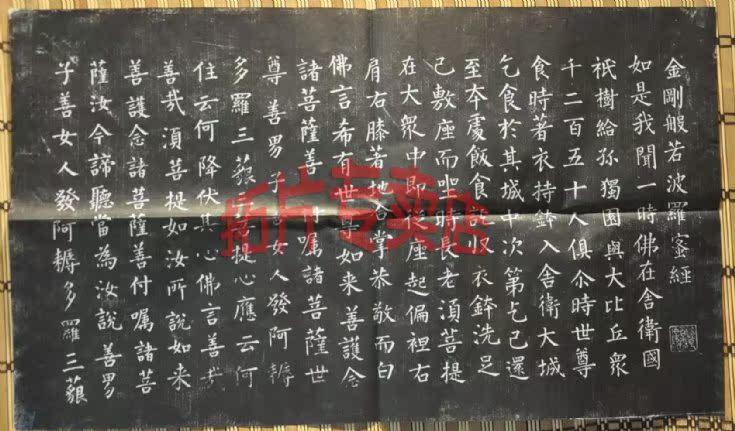 金剛般若波羅蜜經
如是我聞一時佛在舍衛國
祇樹給孫獨園與大比丘衆
千二百五十人俱尒時世尊
食時著衣持鉢入舍衛大城
乞食於其城中次第乞已還
至本處飯食收衣鉢洗足
已敷座而坐時長老須菩提
在大衆中即座起偏袒右
肩右膝著地合掌恭敬而白
佛言希有世尊如来善護念
諸菩薩善付嘱諸菩薩世
尊善男子善女人發阿耨
多羅三藐菩提心應云何
住云何降伏其心佛言善哉
善哉須菩提如汝所說如来
善護念諸菩薩善付嘱諸菩
薩汝今諦聽當為汝說善男
子善女人發阿耨多羅三藐
拓片专卖店